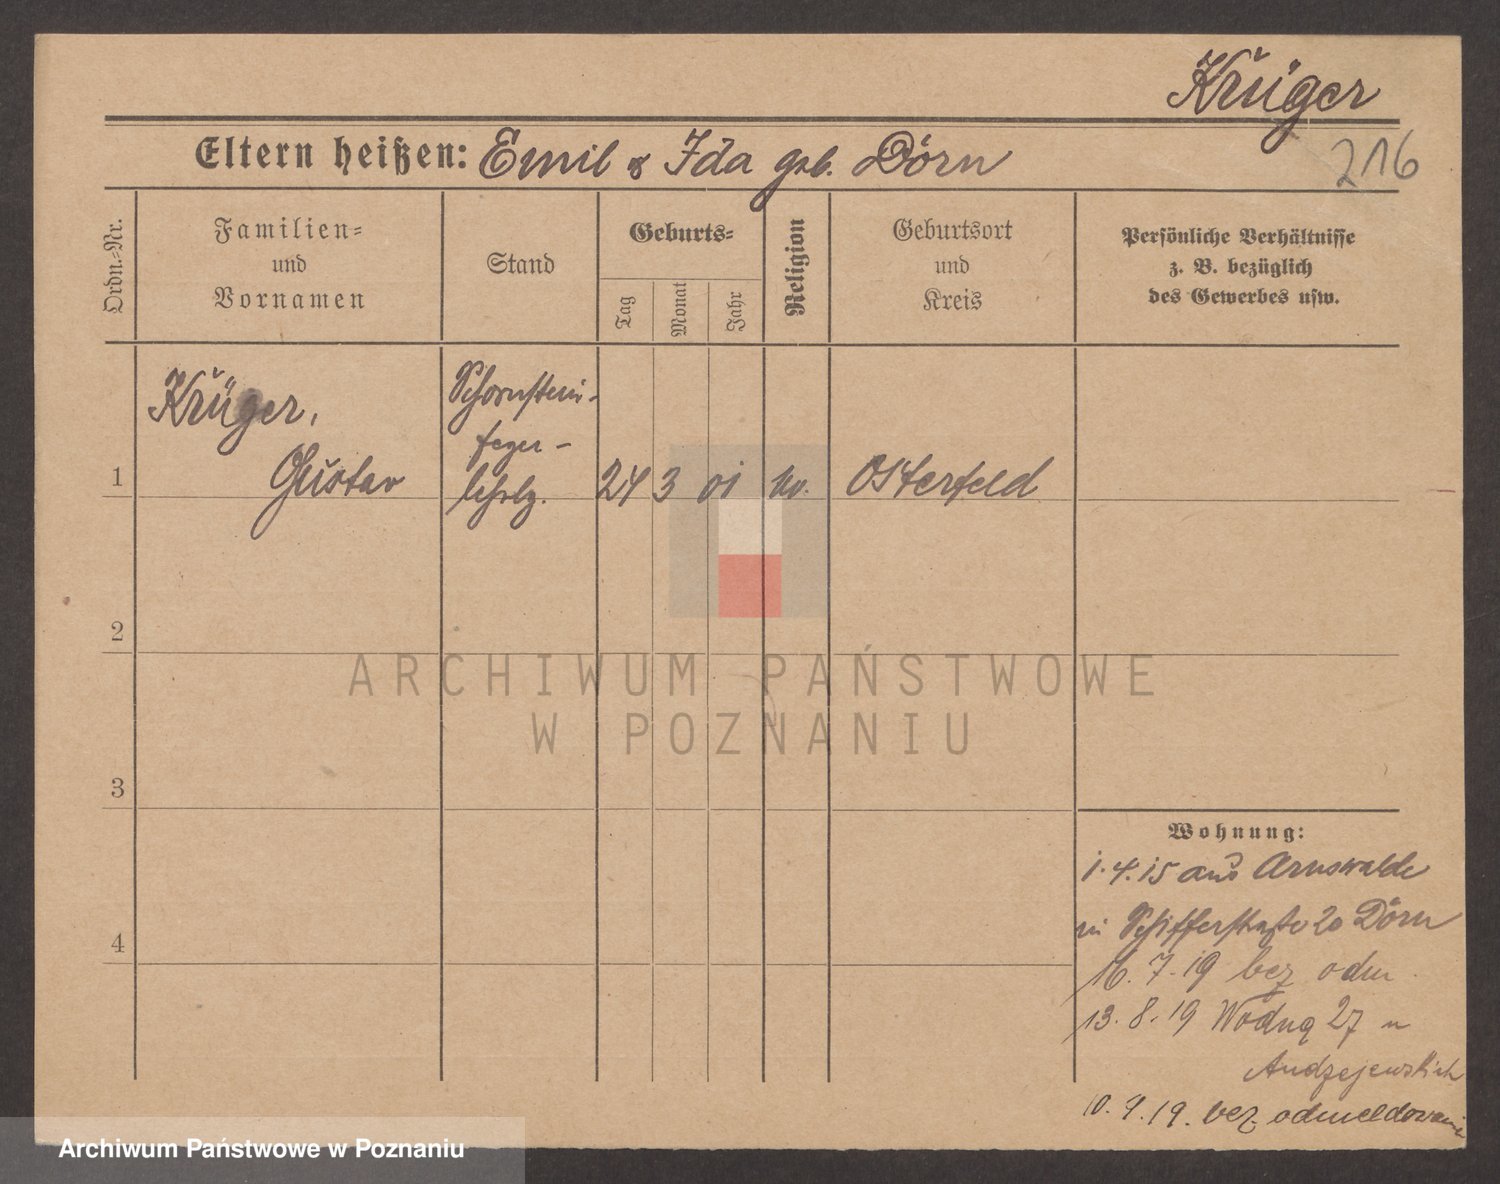 Krüger
216
Eltern heißen: Emil & Ida geb. Dörn
Ordn.-Nr.
Familien-
und
Vornamen
Stand
Geburts-
Tag
Monat
Jahr
Religion
Geburtsort
und
Kreis
Persönliche Verhältnisse
z. B. bezüglich
des Gewerbes usw.
1
Krüger,
Gustav
Schornstein-
feger-
lehrlg.
24
3
01
ev.
Osterfeld
2
3
4
ARCHIWUM PAŃSTWOWE
W POZNANIU
Wohnung:
1.4.15 aus Arnswalde
Schifferstraße 20 Dörn
16.7.19 bez odm
13.8.19 Wodną 27 u
10.9.19. bez odmeldowania
Archiwum Państwowe w Poznaniu